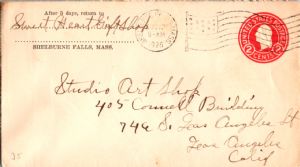 After 5 days, return to
Sweet Heart Gift Shop
SHELBURNE FALLS, MASS.
UNITED STATES POSTAGE
2 CENTS 2
Studio Art Shop
405 Connell Building
746 S. Los Angeles St
Los Angeles
Calif